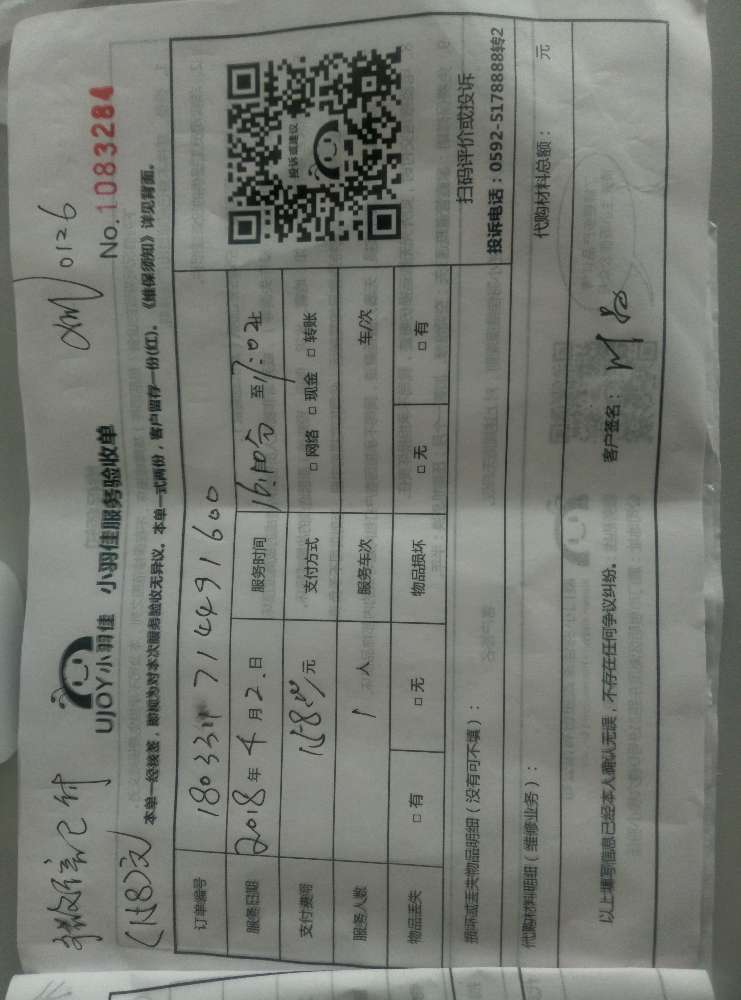 微信已付
(158)元
UJOY小羽佳 小羽佳服务验收单
0126
No. 1083284
本单一经核签，即视为对本次服务验收无异议。本单一式两份，客户留存一份(红)。《维保须知》详见背面。
订单编号
服务日期 2018年4月2日 服务时间 至17:02
支付费用 158元 支付方式 □网络 □现金 □转账
服务人数 1人 服务车次 车/次
物品丢失 □有 □无 物品损坏 □无 □有
投诉或建议
扫码评价或投诉
投诉电话：0592-5178888转2
损坏或丢失物品明细（没有可不填）：
代购材料明细（维修业务）： 代购材料总额： 元
以上填写信息已经本人确认无误，不存在任何争议纠纷。 客户签名：